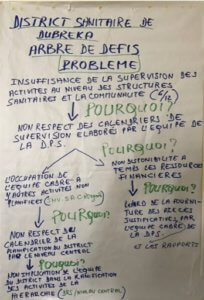 DISTRICT SANITAIRE DE
DUBREKA
ARBRE DE DEFIS
PROBLEME
INSUFFISANCE DE LA SUPERVISION DES
ACTIVITES AU NIVEAU DES STRUCTURES
SANITAIRES ET LA COMMUNAUTE (6/12)
POURQUOI?
NON RESPECT DES CALENDRIERS DE
SUPERVISION ELABORÉ PAR L'EQUIPE DE
LA DPS.
POURQUOI?
L'OCCUPATION DE
L'EQUIPE CADRE A
D'AUTRES ACTIVITES NON
PLANIFIEES
POURQUOI?
NON RESPECT DES
CALENDRIER DE LA
PLANIFICATION DU DISTRICT
PAR LE NIVEAU CENTRAL
POURQUOI?
NON IMPLICATION DE L'EQUIPE
DU DISTRICT DANS LA PLANIFICATION
DES ACTIVITES DE LA
HIERARCHIE (DRS/NIVEAU CENTRAL)
NON DISPONIBILITÉ A
TEMPS DES RESSOURCES
FINANCIERES
POURQUOI?
DE LA FOURNITURE
DES PIECES
JUSTIFICATIVES PAR
L'EQUIPE CADRE DE
LA DPS.
ET LES RAPPORTS